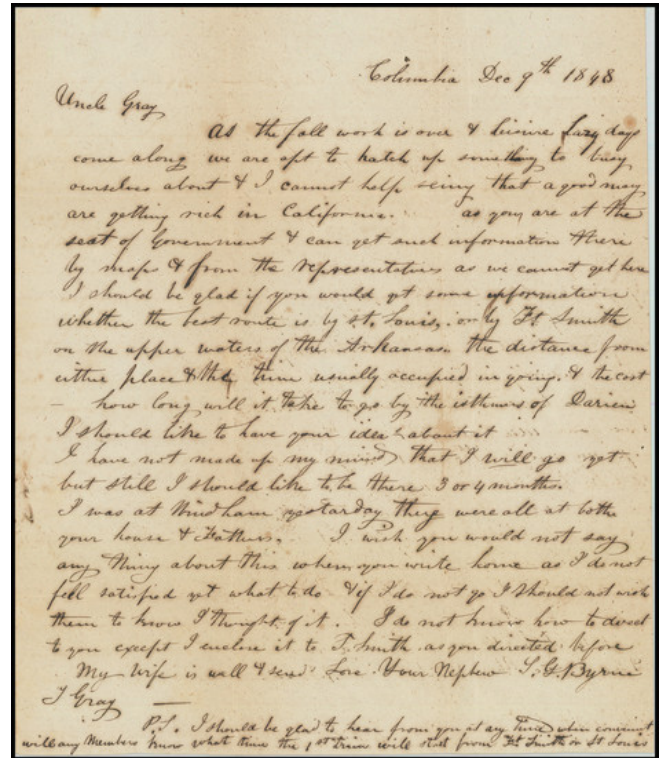 Columbia Dec 9th 1848
Uncle Gray
As the fall work is over & liesure lazy days
come along we are apt to hatch up something to busy
ourselves about & I cannot help seing that a good many
are getting rich in California. as you are at the
seat of Government & can get such information there
by maps & from the representatives as we cannot get here
I should be glad if you would get some information
whether the best route is by St. Louis, or by Ft Smith
on the upper waters of the Arkansas. the distance from
either place & the time usually occupied in going. & the cost
— how long will it take to go by the isthmus of Darien
I should like to have your idea about it
I have not made up my mind that I will go yet
but still I should like to be there 3 or 4 months.
I was at Windham yestarday they were all at both
your house & Fathers. I wish you would not say
any thing about this when you write home as I do not
fell satisfied yet what to do & if I do not go I should not wish
them to know I thought of it. I do not know how to direct
to you except I enclose it to T. Smith as you directed before
My Wife is well & send Love Your Nephew S. G. Byrne
J Gray —
P.S. I should be glad to hear from you at any time when convenient
will any Members know what time the 1st train will start from Ft Smith or St Louis